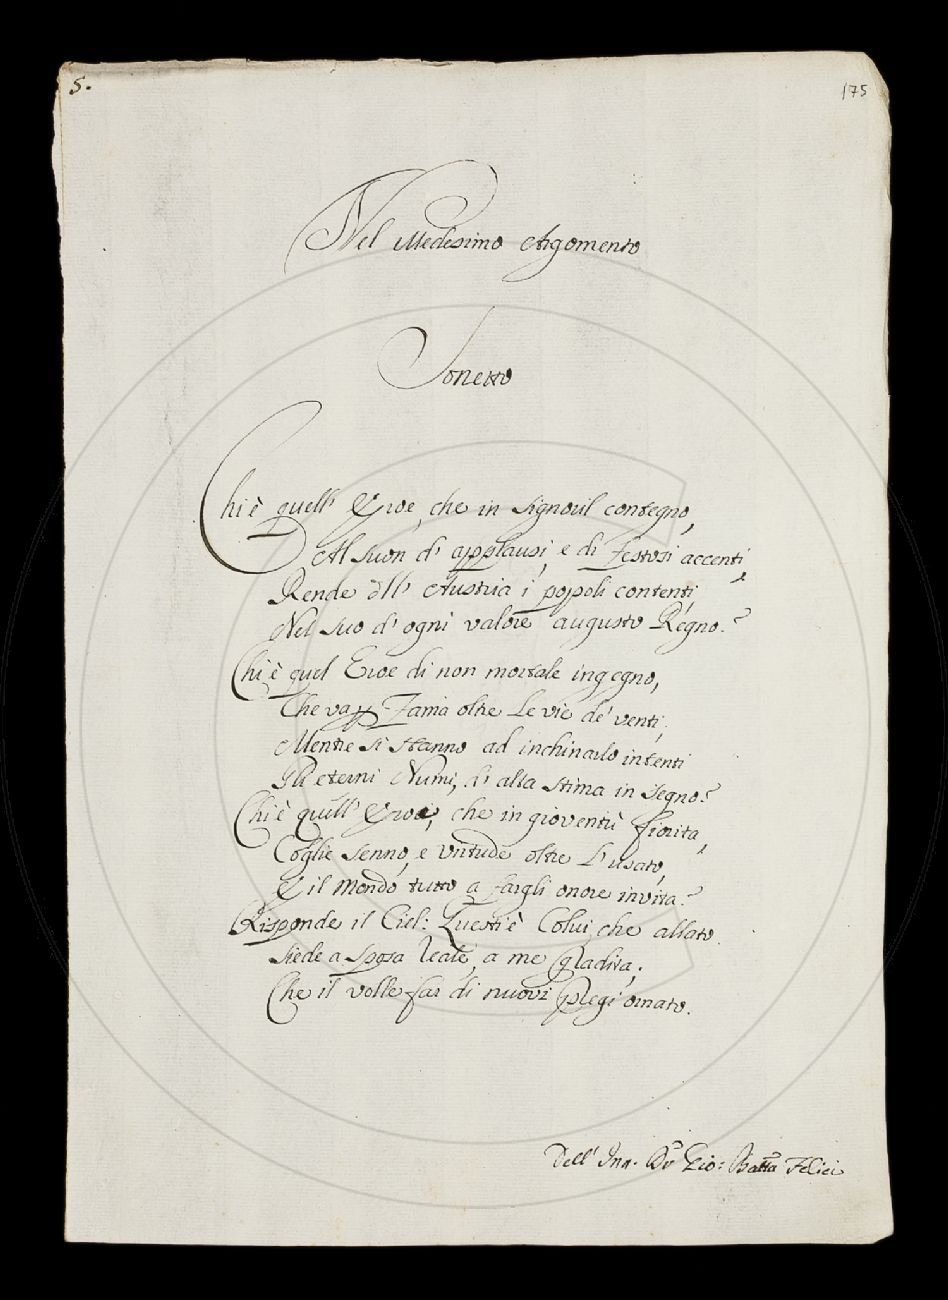 5.
175
Nel Medesimo Argomento
Sonetto
Chi è quell' Eroe, che in signoril contegno,
Al suon d' applausi, e di festosi accenti,
Rende all' Austria i popoli contenti
Nel suo d' ogni valore augusto Regno?
Chi è quel Eroe di non mortale ingegno,
Che va per Fama oltre le vie de' venti,
Mentre si stanno ad inchinarlo intenti
Gli eterni Numi, di alta stima in segno?
Chi è quell' Eroe, che in gioventù fiorita,
Coglie senno, e virtude oltre l' usato,
E il mondo tutto a fargli onore invita?
Risponde il Ciel: Questi è Colui che allato
siede a sposa leale, a me gradita;
Che il volle far di nuovi pregi ornato.
Dell' Ing. Dr Gio: Batta Felici